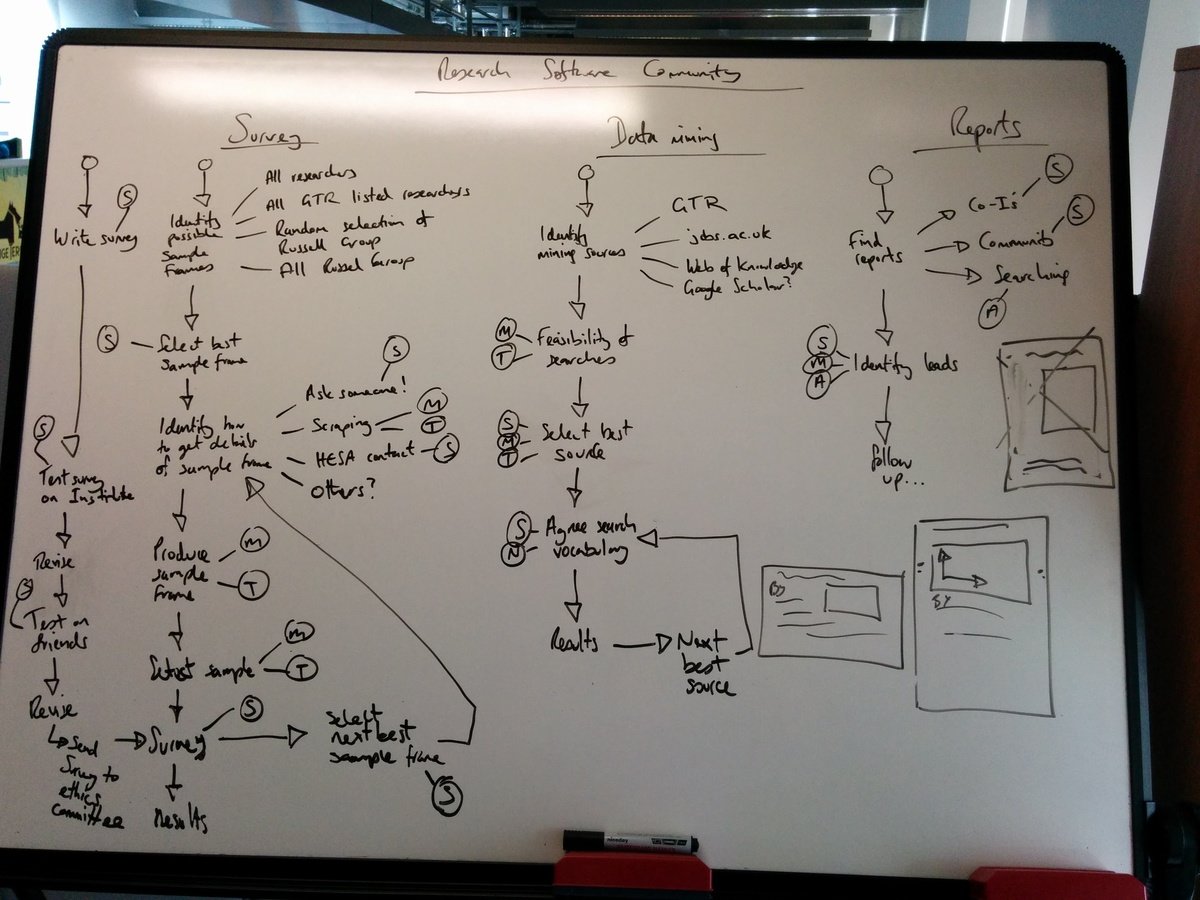 Research Software Community
Survey
Write survey
S
Test survey
on Institute
S
Revise
Test on
friends
S
Revise
Send
Survey to
ethics
committee
Identify
possible
sample
frames
All researchers
All GTR listed researchers
Random selection of
Russell Group
All Russel Group
Select best
sample frame
S
Identify how
to get details
of sample frame
Ask someone!
S
Scraping
M
T
HESA contact
S
Others?
Produce
sample
frame
M
T
sample
M
T
Survey
S
Results
Select
next best
sample frame
S
Data mining
Identify
mining sources
GTR
jobs.ac.uk
Web of Knowledge
Google Scholar?
Feasibility of
searches
M
T
Select best
source
S
M
T
Agree search
vocabulary
S
M
Results
Next
best
source
Reports
Find
reports
Co-Is
S
Community
S
Searching
A
Identify leads
S
M
A
follow
up...
BY
niceday